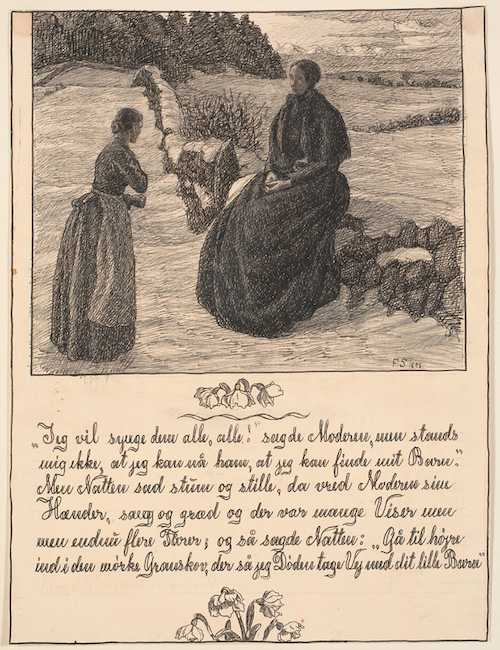 F.S 18
„Jeg vil synge dem alle, alle!“ sagde Moderen, men stands
mig ikke, at jeg kan nå ham, at jeg kan finde mit Barn.“
Men Natten sad stum og stille, da vred Moderen sine
Hænder, sang og græd og der var mange Viser men
men endnu flere Tårer; og så sagde Natten: „Gå til højre
ind i den mørke Granskov, der så jeg Døden tage Vej med dit lille Barn“